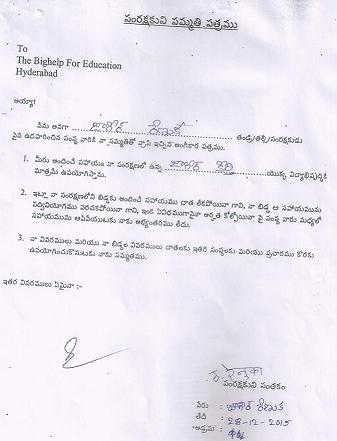 సంరక్షకుని సమ్మతి పత్రము
To
The Bighelp For Education
Hyderabad
అయ్యా!
నేను అనగా రేణుక తండ్రి/తల్లి/సంరక్షకుడు
పైన ఉదహరించిన సంస్థ వారికి నా సమ్మతితో వ్రాసి ఇచ్చిన అంగీకార పత్రము.
1. మీరు అందించే సహాయం నా సంరక్షణలో ఉన్న యొక్క విద్యాభివృద్ధికి
మాత్రమే ఉపయోగిస్తాము.
2. ఇట్లా నా సంరక్షణలోని బిడ్డకు అందించే సహాయము దాత లేకపోయినా గాని, నా బిడ్డ ఆ సహాయమును
సద్వినియోగము పరచకపోయినా గాని, ఇంక ఏవిధముగానైనా అర్హత కోల్పోయినా పై సంస్థ వారు మధ్యలో
సహాయమును ఆపివేయుటకు నాకు అభ్యంతరము లేదు.
3. నా వివరములు మరియు నా బిడ్డల వివరములు దాతలకు ఇతర సంస్థలకు మరియు ప్రచారము కొరకు
ఉపయోగించుకొనుటకు నాకు సమ్మతము.
ఇతర వివరములు ఏమైనా :-
సంరక్షకుని సంతకం
పేరు : రేణుక
తేది : 28-12-2015